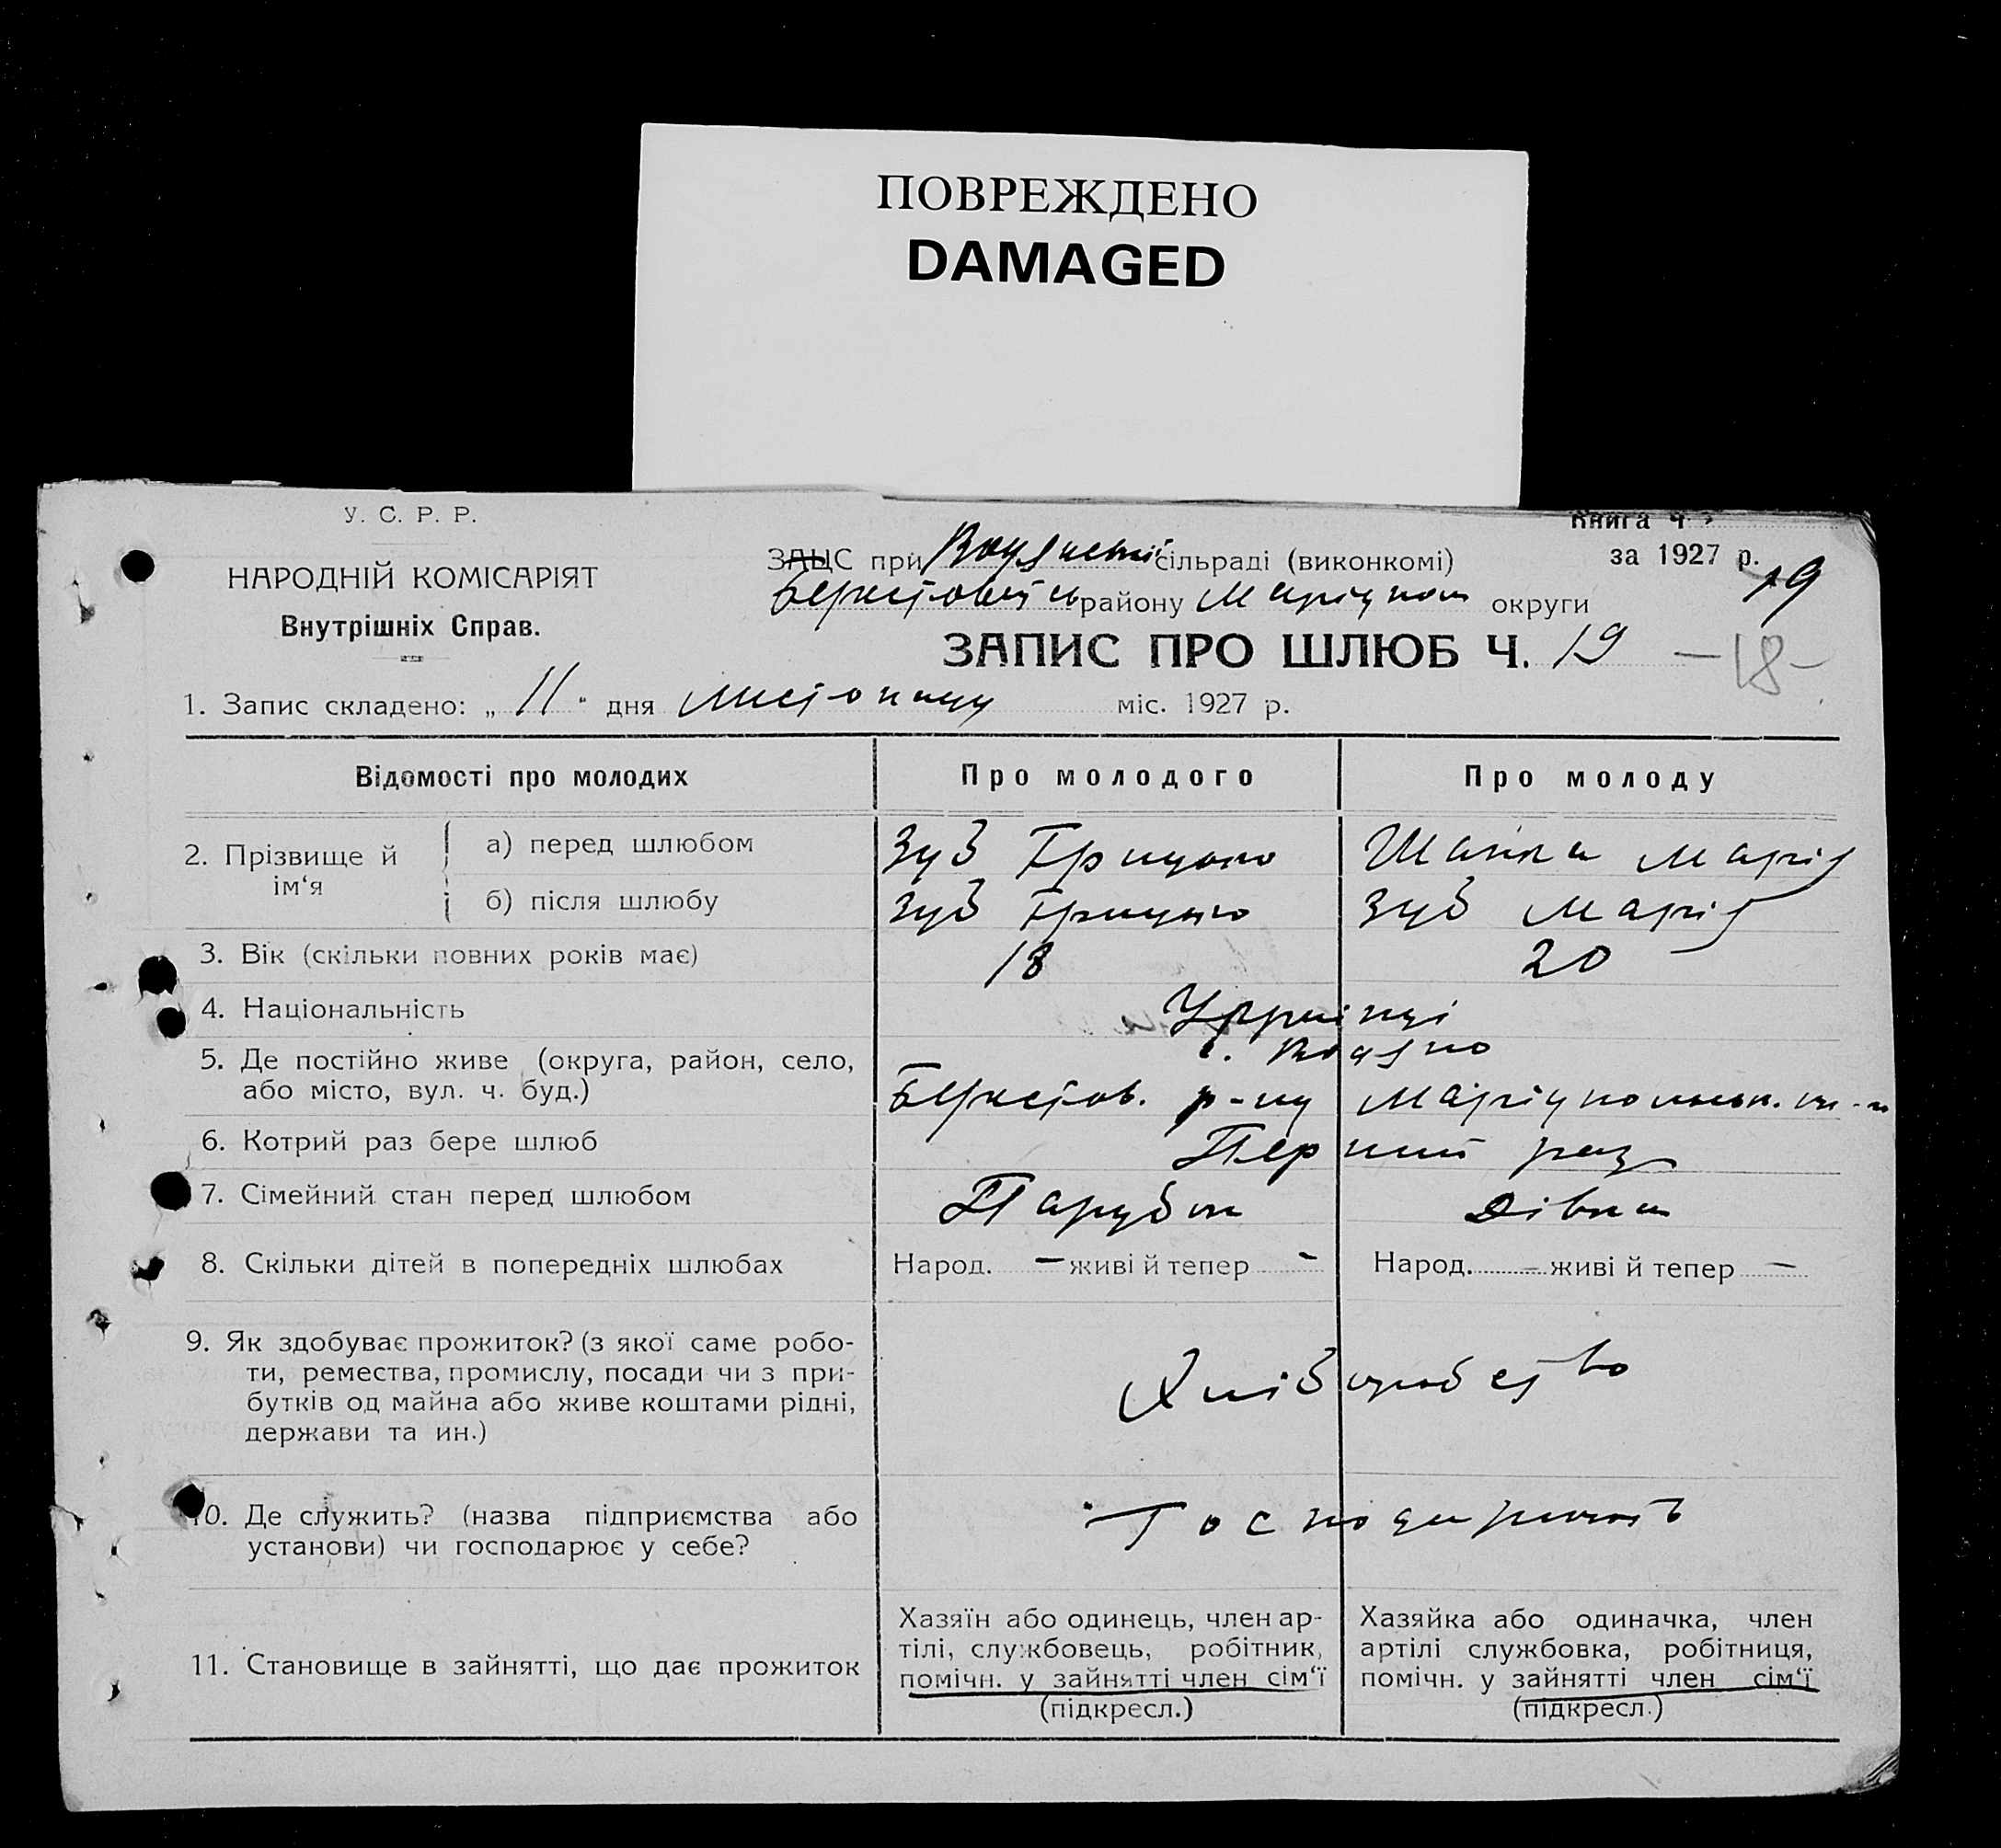 ПОВРЕЖДЕНО
DAMAGED
У. С. Р. Р.
Книга ч
НАРОДНІЙ КОМІСАРІЯТ
Внутрішніх Справ.
ЗАЦС при сільраді (виконкомі)
за 1927 р.
19
району Маріупол округи
ЗАПИС ПРО ШЛЮБ Ч. 19
-18-
1. Запис складено: „ 11 " дня листопаду міс. 1927 р.
Відомості про молодих Про молодого Про молоду
2. Прізвище й ім‘я
а) перед шлюбом Зуб Грицько Марія
б) після шлюбу Зуб Грицько Зуб Марія
3. Вік (скільки повних років має) 18 20
4. Національність Українці
5. Де постійно живе (округа, район, село,
або місто, вул. ч. буд.)
с.
Берестов. р-ну
6. Котрий раз бере шлюб Перший раз
7. Сімейний стан перед шлюбом Парубок Дівка
8. Скільки дітей в попередніх шлюбах Народ. – живі й тепер – Народ. – живі й тепер –
9. Як здобуває прожиток? (з якої саме робо-
ти, ремества, промислу, посади чи з при-
бутків од майна або живе коштами рідні,
держави та ин.)
Хліборобство
10. Де служить? (назва підприємства або
установи) чи господарює у себе?
11. Становище в зайнятті, що дає прожиток
Хазяїн або одинець, член ар-
тілі, службовець, робітник,
помічн. у зайнятті член сім‘ї
(підкресл.)
Хазяйка або одиначка, член
артілі службовка, робітниця,
помічн. у зайнятті член сім‘ї
(підкресл.)